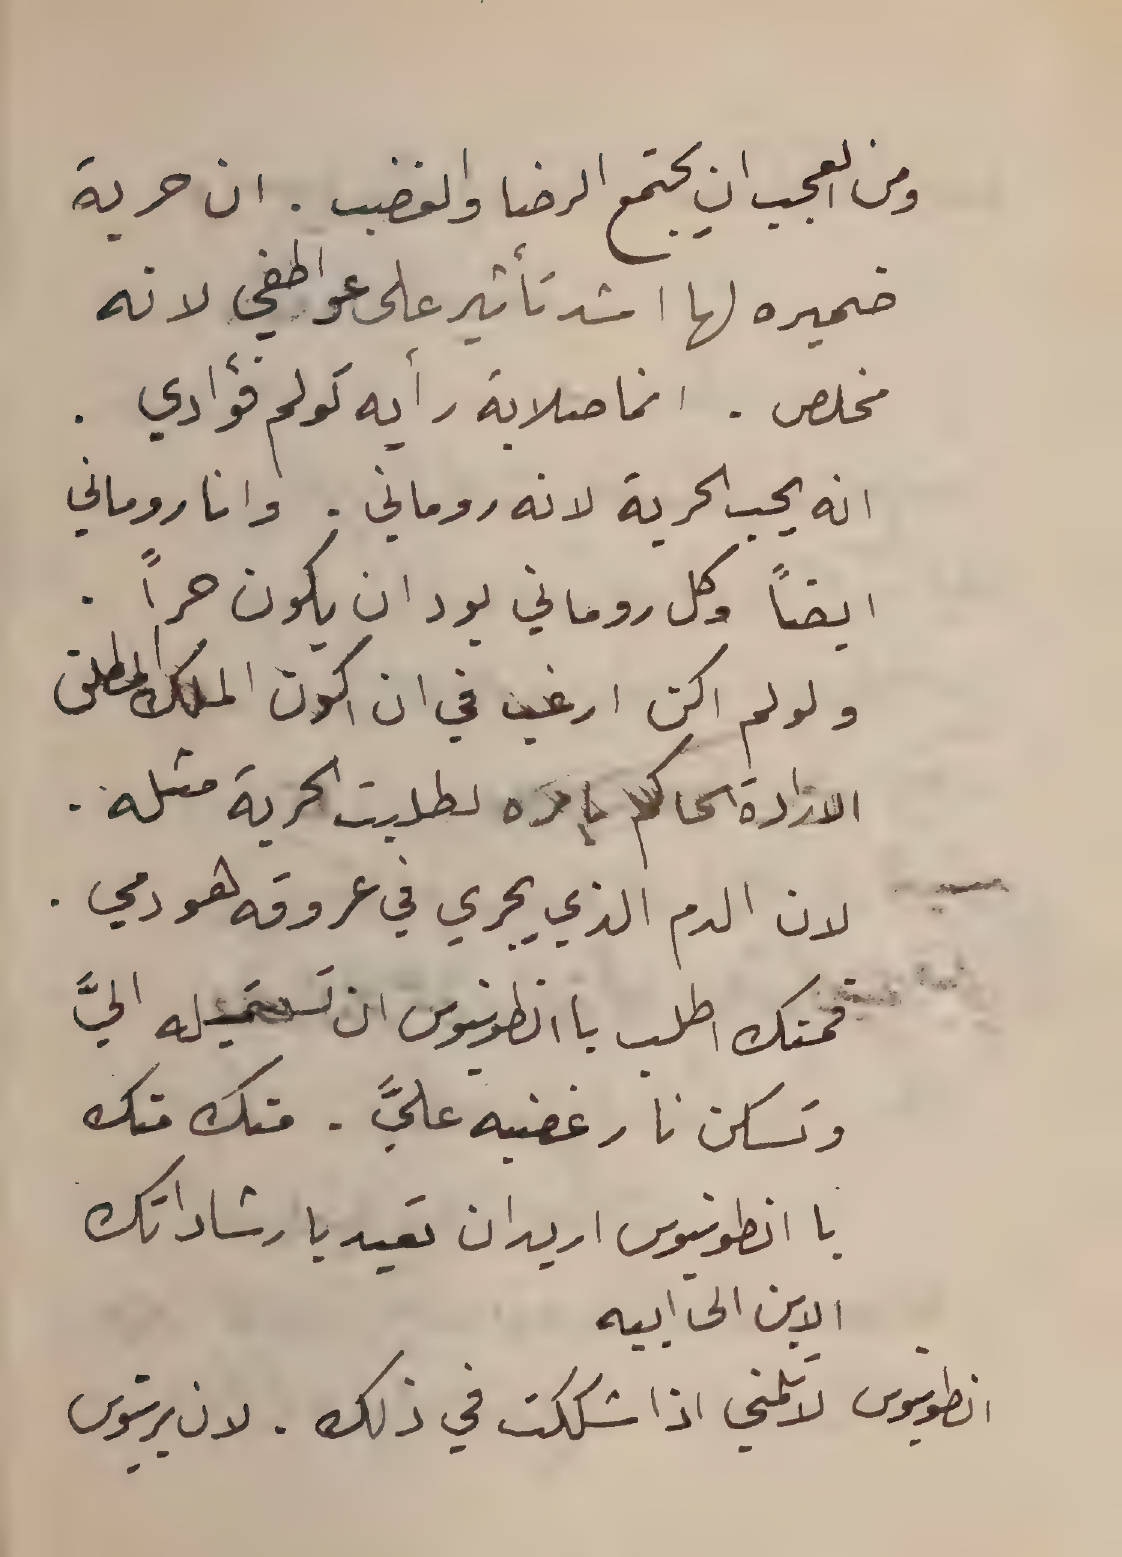 ومن العجب ان يجتمع الرضا والغضب . ان حرية
ضميره لها اشد تأثير على عواطفي لانه
مخلص . انما صلابة رأيه تولم فؤادي .
انه يحب الحرية لانه روماني . وانا روماني
ايضاً وكل روماني يود ان يكون حراً .
ولولم اكن ارغب في ان اكون الملك المطلق
الارادة الحاكم بامره لطلبت الحرية مثله .
لان الدم الذي يجري في عروقه هو دمي .
فمنك اطلب يا انطونيوس ان تستميله اليَّ
وتسكن نار غضبه عليَّ . منك منك
يا انطونيوس اريد ان تعيد بارشاداتك
الابن الى ابيه
انطونيوس لا تلمني اذا شككت في ذلك . لان برتوس